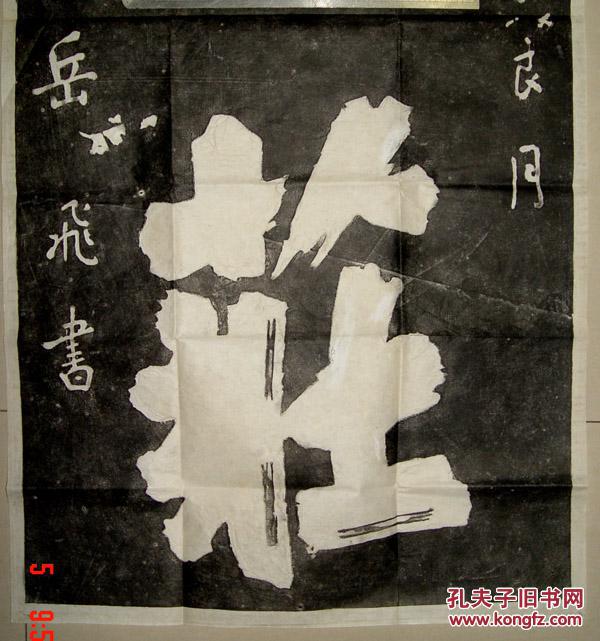 良月
莊
岳飛書
5 9:5
孔夫子旧书网
www.kongfz.com